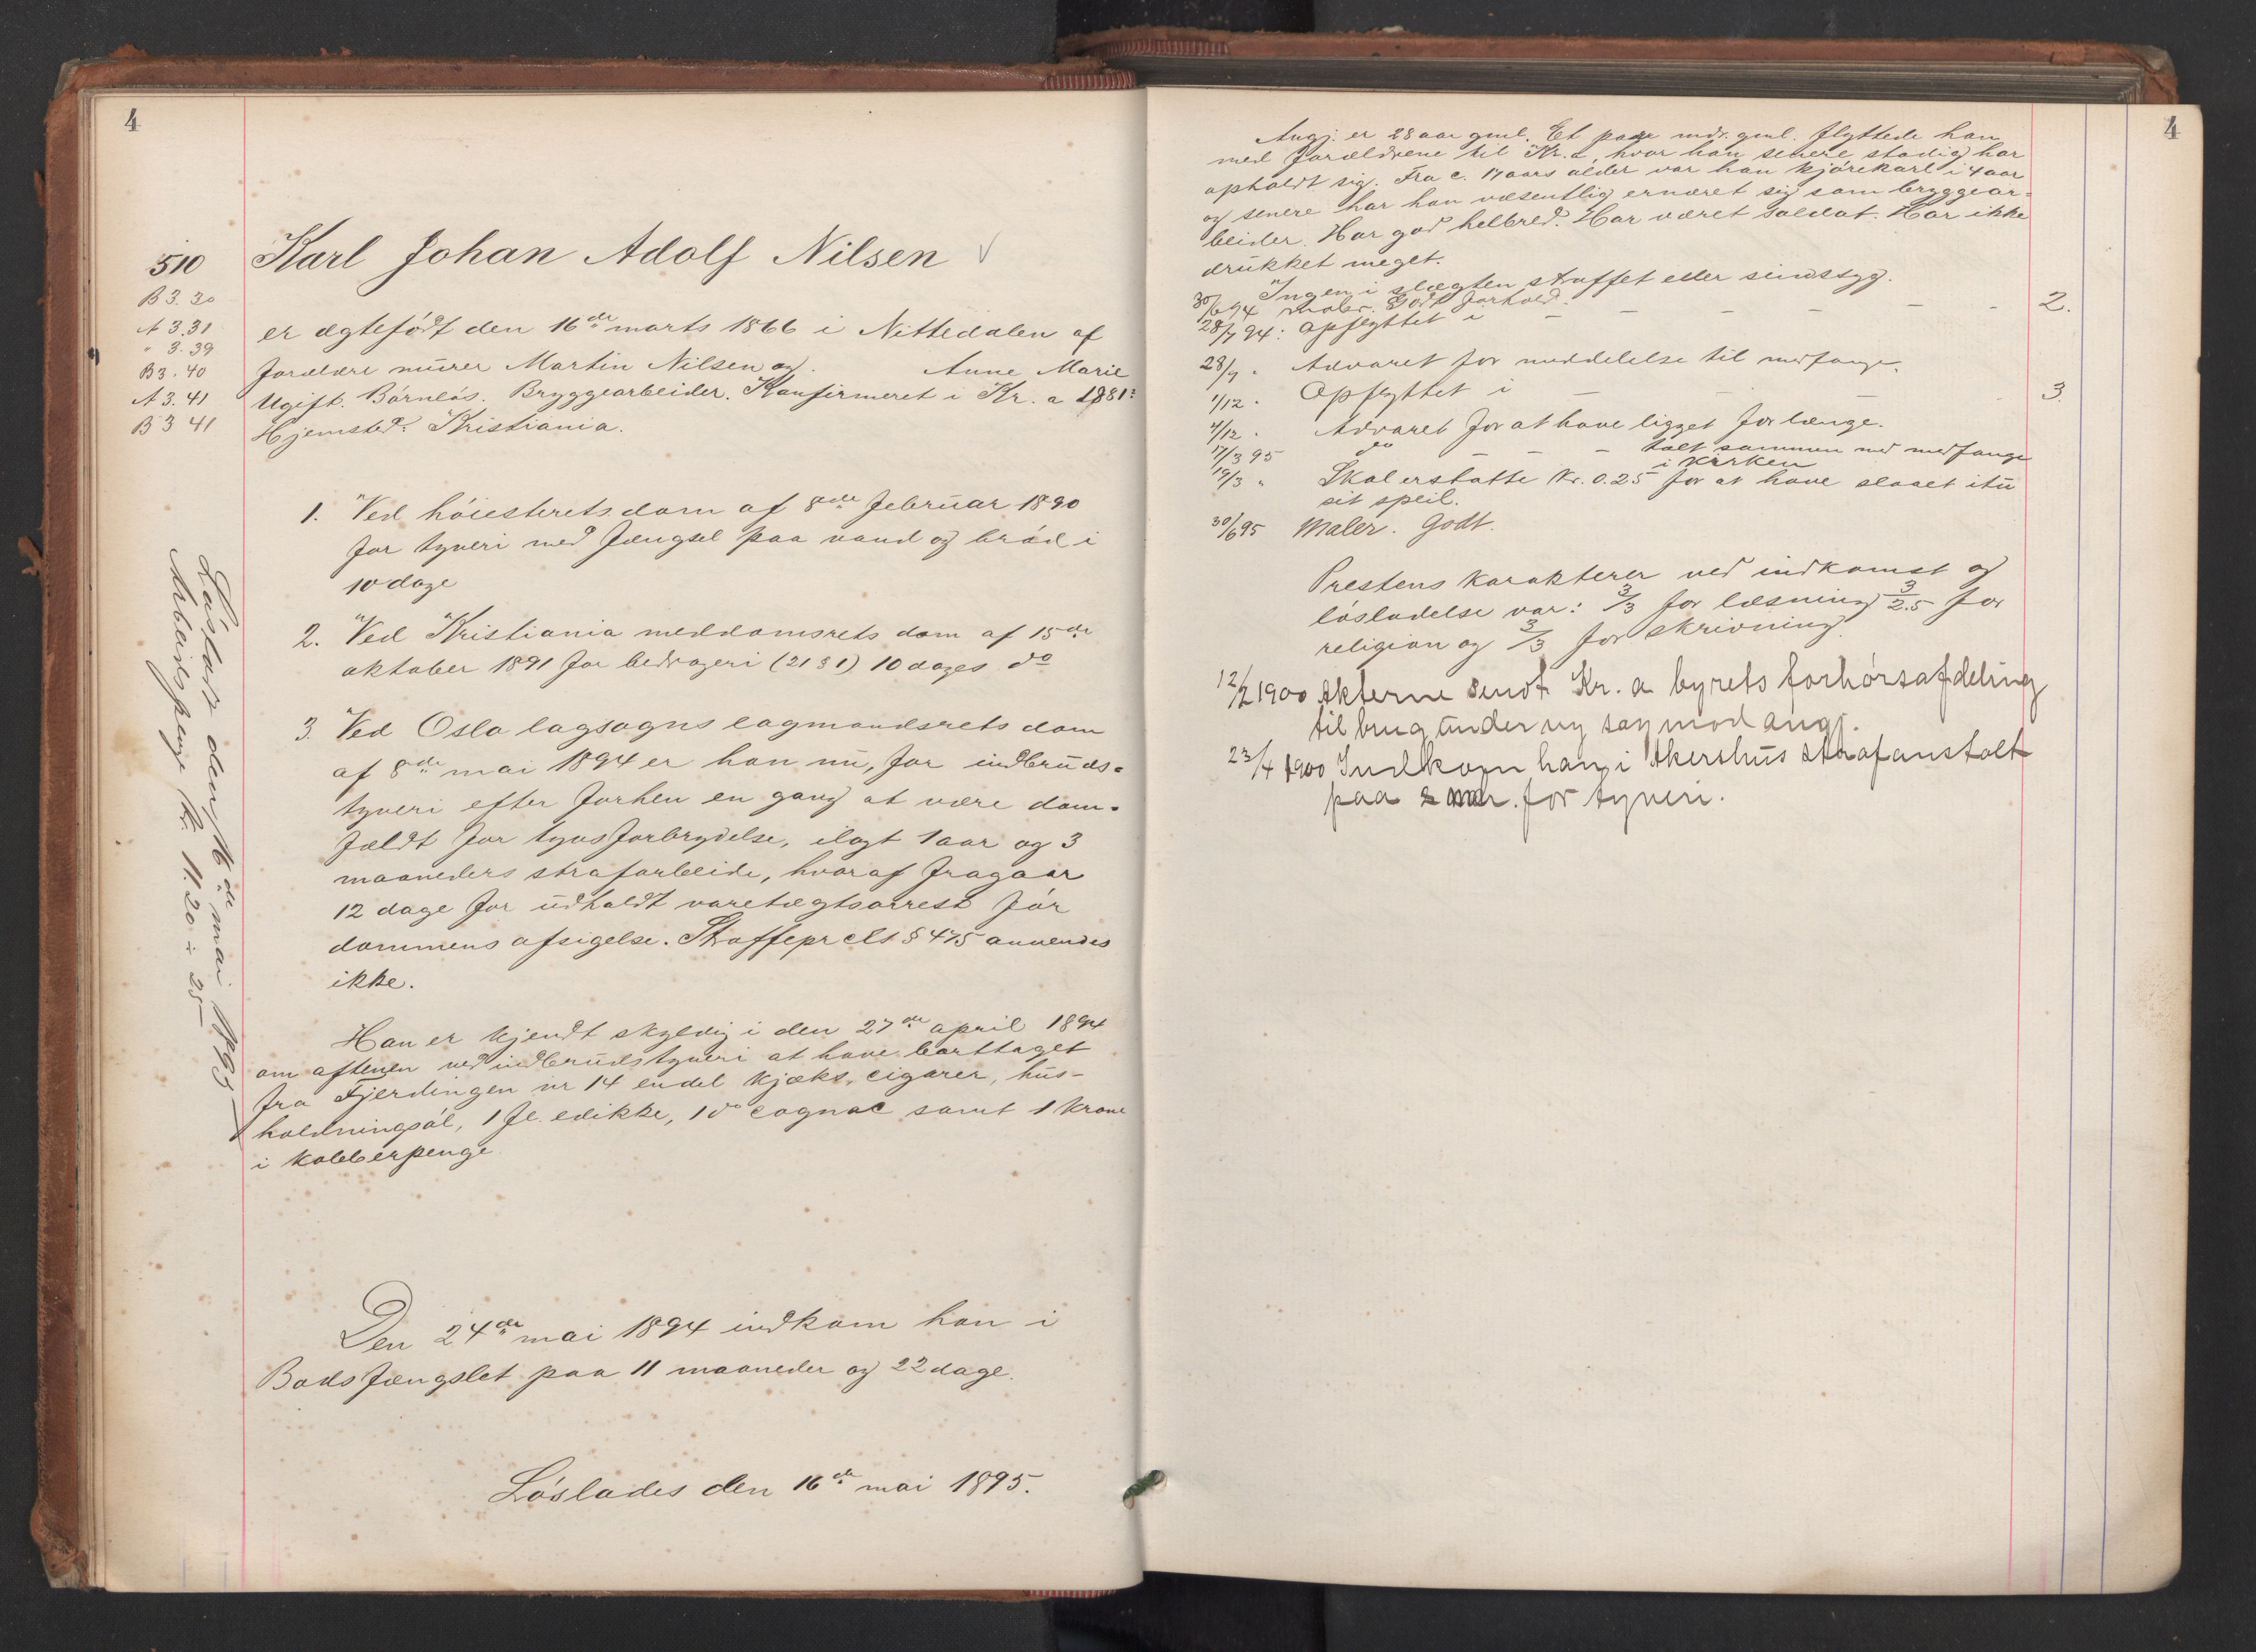 4
510
B 3. 30
A 3. 31
" 3. 39
B 3. 40
A 3. 41
B 3 41
Karl Johan Adolf Nilsen
er ægtefödt den 16de marts 1866 i Nittedalen af
forældre murer Martin Nilsen og Anne Marie
Ugift. Börnlös. Bryggearbeider. Konfirmeret i Kr.a 1881.
Hjemsted: Kristiania.
1. Ved höiesteretsdom af 8de februar 1890
for tyveri med fængsel paa vand og bröd i
10 dage
2. Ved Kristiania meddomsrets dom af 15de
oktober 1891 for bedrageri (21 § 1) 10 dages do
3. Ved Oslo lagsogns lagmandsrets dom
af 8de mai 1894 er han nu, for indbruds-
tyveri efter forhen en gang at være dom-
fældt for tyvsforbrydelse, ilagt 1 aar og 3
maaneders strafarbeide, hvoraf fragaar
12 dage for udholdt varetægtsarrest för
dommens afsigelse. Straffeprcls § 475 anvendes
ikke.
Han er kjendt skyldig i den 27de april 1894
om aftenen ved indbrudstyveri at have borttaget
fra Fjerdingen nr 14 endel kjæks, cigarer, hus-
holdningsöl, 1 fl. edikke, 1 do cognac samt 1 krone
i kobberpenge
Den 24de mai 1894 indkom han i
Bodsfængslet paa 11 maaneder og 22 dage.
Löslades den 16de mai 1895.
Löslodes den 16de mai 1895
Arbeidspenge Kr. 11.20 ÷ 25
4
Angj. er 28 aar gml. Et par mdr. gml. flyttede han
med forældrene til Kr.a, hvor han senere stadig har
opholdt sig. Fra c. 17 aars alder var han kjörekarl i 4 aar
og senere har han væsentlig ernæret sig som bryggear-
beider. Har god helbred. Har været soldat. Har ikke
drukket meget.
Ingen i slægten straffet eller sindssyg.
30/6 94 Maler. Godt forhold.
28/7 94: Opflyttet i – – – – – 2.
28/9 " Advaret for meddelelse til medfange.
1/12 " Opflyttet i – – – 3.
4/12 " Advaret for at have ligget for længe.
17/3 95 do – – – talt sammen med medfange
i kirken
19/3 " Skal erstatte Kr. 0.25 for at have slaaet itu
sit speil.
30/6 95 Maler. Godt.
Prestens karakterer ved indkomst og
lösladelse var: 3/3 for læsning 3/2.5 for
religion og 3/3 for skrivning.
12/2 1900 Akterne sendt Kr.a byrets forhörsafdeling
til brug under ny sag mod angj.
23/4 1900 Indkom han i Akershus strafanstalt
paa for tyveri.